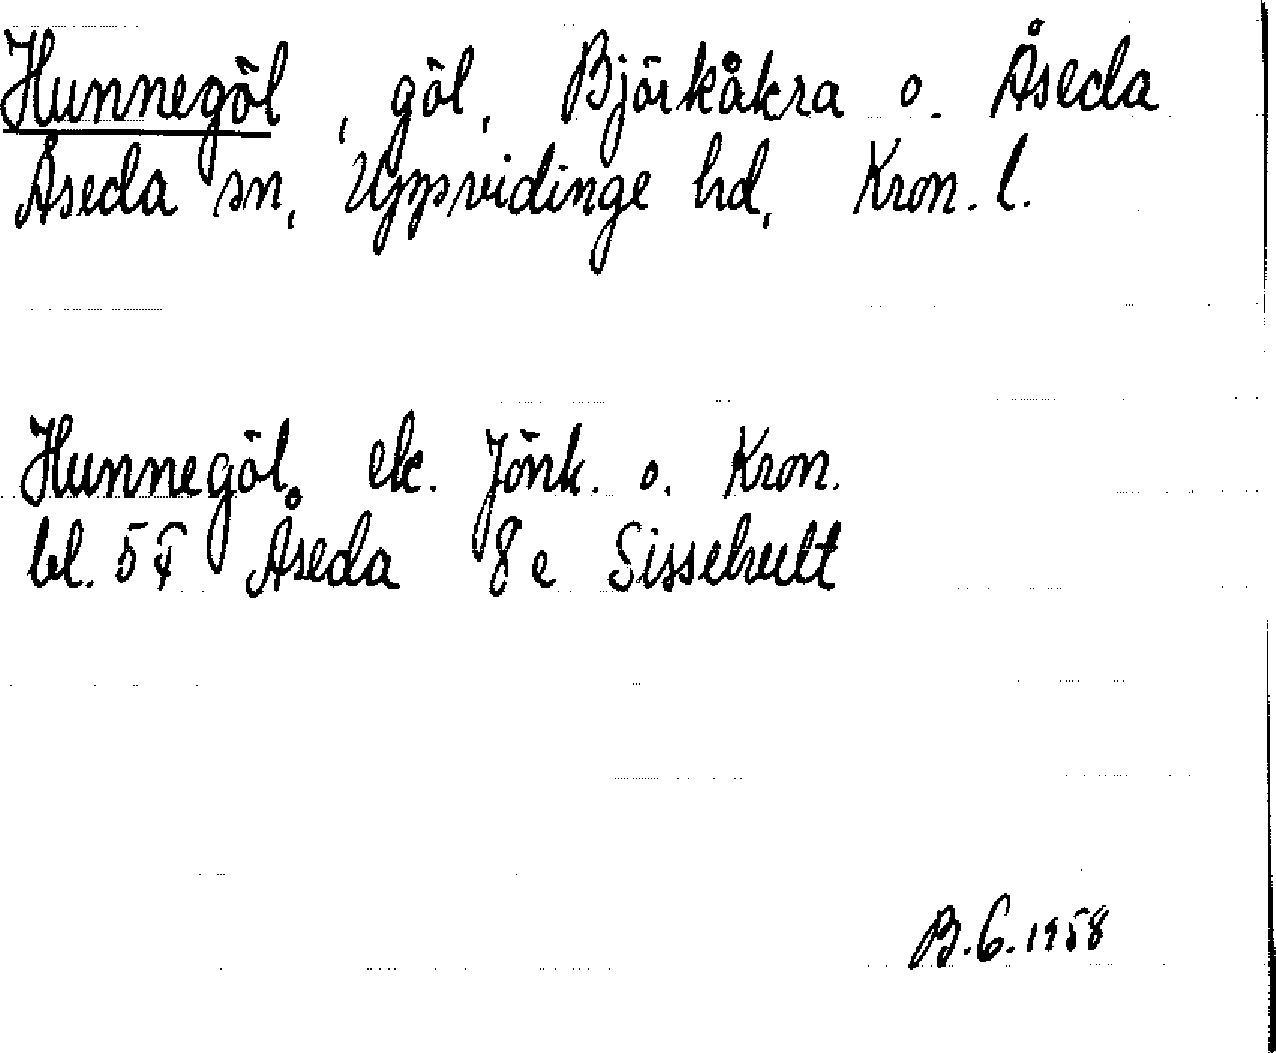 Hunnegöl, göl, Björkåkra o. Åseda
Åseda sn, Uppvidinge hd, Kron. l.
Hunnegöl ek. Jönk. o. Kron.
bl. 54 Åseda 8e Sissehult
B.G. 1958